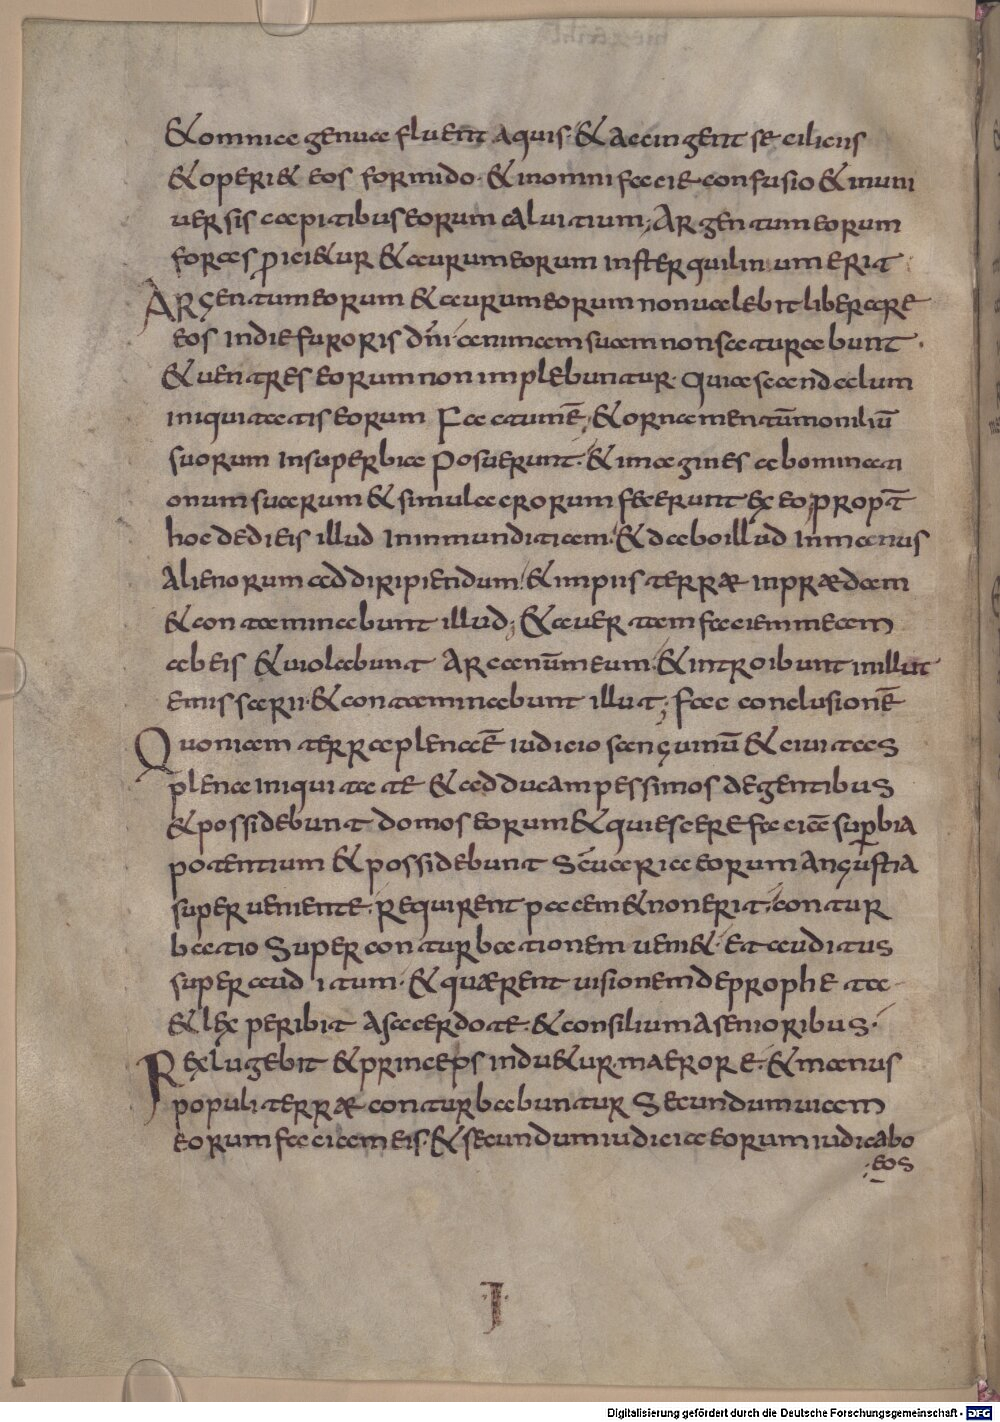 & omnia genua fluent aquis· & accingent se ciliciis
& operi& eos formido· & in omni facie confusio & in uni
uersis capitibus eorum caluitium; Argentum eorum
foras ꝓici&ur & aurum eorum in sterquilinium erit
Argentum eorum & aurum eorum non ualebit liberare
eos in die furoris dñi animam suam non saturabunt·
& uentres eorum non implebuntur· Quia scandalum
iniquitatis eorum factum ē; & ornamentū moniliū
suorum in superbia posuerunt· & imagines abominati
onum suarum & simulacrorum fecerunt ex eo, propt̄
hoc dedi eis illud in inmunditiam· & dabo illud in manus
alienorum ad diripiendum· & impiis terræ in prædam
& contaminabunt illud; & auertam faciem meam
ab eis & uiolabunt arcanūm eum· & introibunt in illut
emissarii· & contaminabunt illut; fac conclusionē
Quoniam terra plena ē iudicio sanguinū & ciuitas
plena iniquitate & adducam pessimos de gentibus
& possidebunt domos eorum & quiescere faciā suꝑbia
potentium & possidebunt sc̄uaria eorum angustia
superueniente· requirent pacem & non erit, contur
batio super conturbationem ueni&· et auditus
super auditum· & quærent uisionem de propheta·
& lex peribit a sacerdote· & consilium a senioribus·
Rex lugebit & princeps indu&ur· maerore· & manus
populi terræ conturbabuntur secundum uiam
eorum faciam eis· & secundum iudicia eorum iudicabo
;eos
·I·
Digitalisierung gefördert durch die Deutsche Forschungsgemeinschaft - DFG